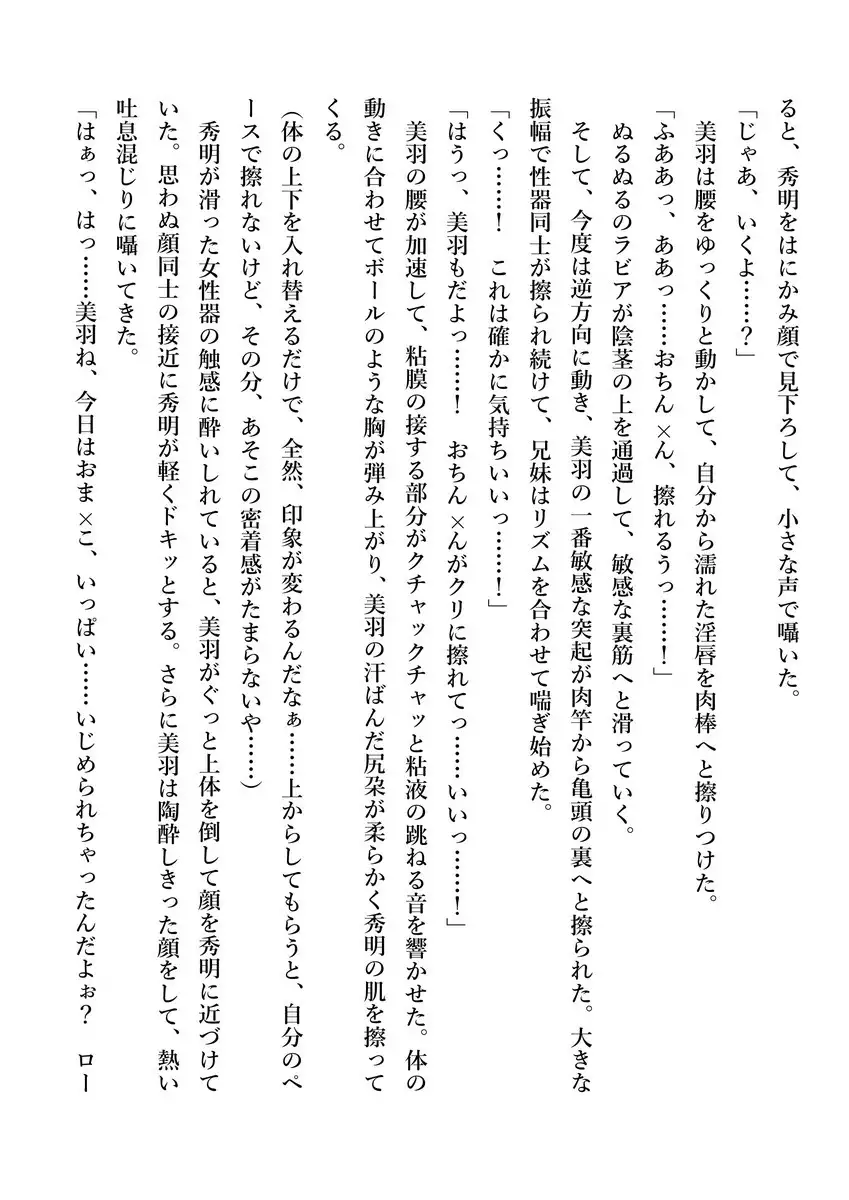 ると、秀明をはにかみ顔で見下ろして、小さな声で囁いた。
「じゃあ、いくよ……？」
美羽は腰をゆっくりと動かして、自分から濡れた淫唇を肉棒へと擦りつけた。
「ふああっ、ああっ……おちん×ん、擦れるうっ……！」
ぬるぬるのラビアが陰茎の上を通過して、敏感な裏筋へと滑っていく。
そして、今度は逆方向に動き、美羽の一番敏感な突起が肉竿から亀頭の裏へと擦られた。大きな
振幅で性器同士が擦られ続けて、兄妹はリズムを合わせて喘ぎ始めた。
「くっ……！　これは確かに気持ちいいっ……！」
「はうっ、美羽もだよっ……！　おちん×んがクリに擦れてっ……いいっ……！」
美羽の腰が加速して、粘膜の接する部分がクチャックチャッと粘液の跳ねる音を響かせた。体の
動きに合わせてボールのような胸が弾み上がり、美羽の汗ばんだ尻朶が柔らかく秀明の肌を擦って
くる。
（体の上下を入れ替えるだけで、全然、印象が変わるんだなぁ……上からしてもらうと、自分のペ
ースで擦れないけど、その分、あそこの密着感がたまらないや……）
秀明が滑った女性器の触感に酔いしれていると、美羽がぐっと上体を倒して顔を秀明に近づけて
いた。思わぬ顔同士の接近に秀明が軽くドキッとする。さらに美羽は陶酔しきった顔をして、熱い
吐息混じりに囁いてきた。
「はぁっ、はっ……美羽ね、今日はおま×こ、いっぱい……いじめられちゃったんだよぉ？　ロー